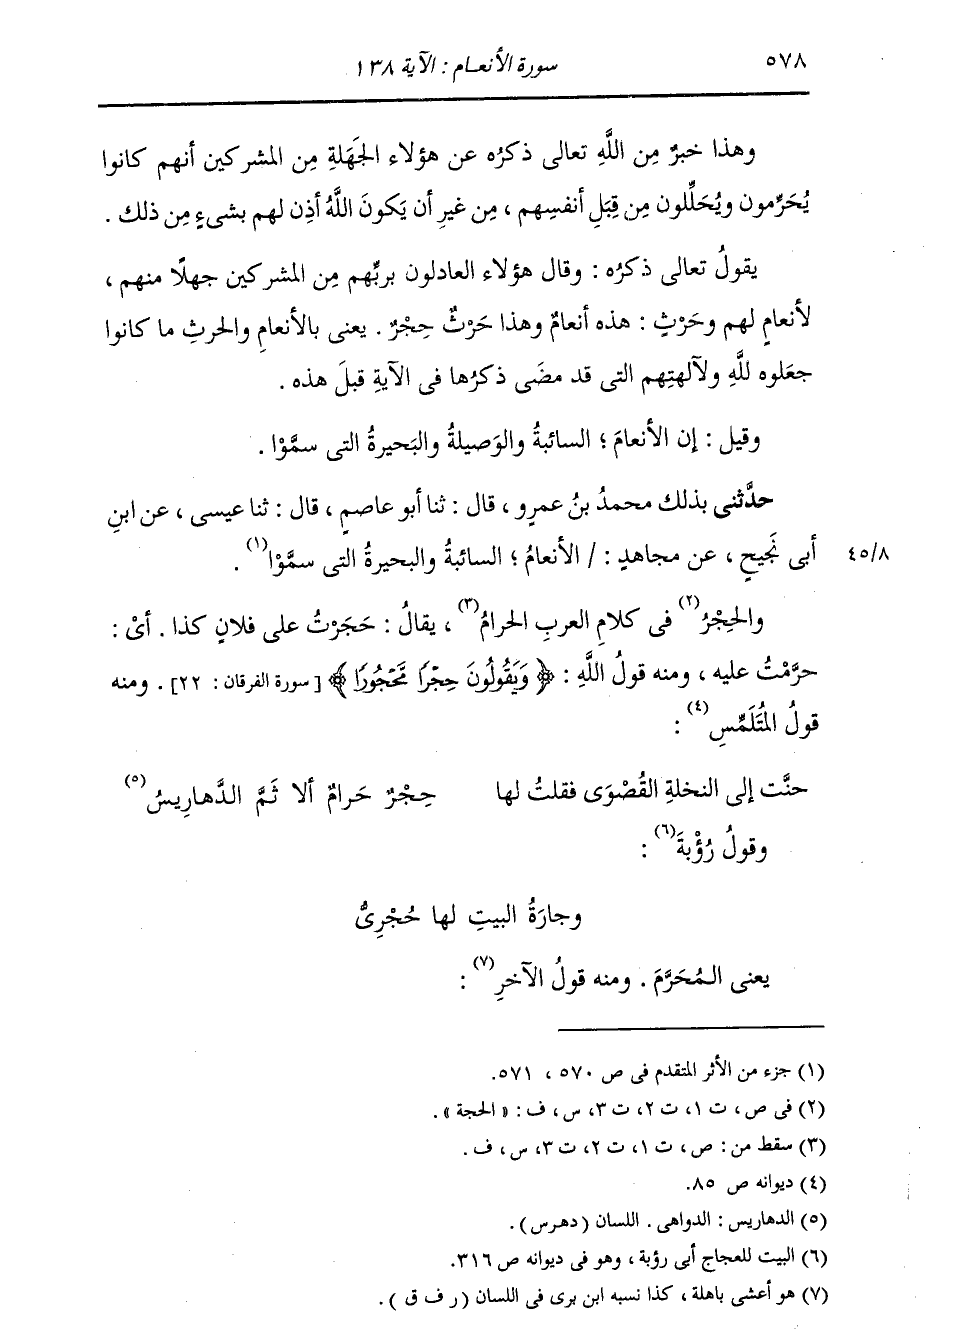 ٥٧٨
سورة الأنعام : الآية ١٣٨
وهذا خبرٌ مِن اللَّهِ تعالى ذكرُه عن هؤلاء الجَهَلةِ مِن المشركين أنهم كانوا
يُحَرِّمون ويُحَلِّلون مِن قِبَلِ أنفسِهم ، مِن غيرِ أن يَكونَ اللَّهُ أذِن لهم بشىءٍ مِن ذلك .
يقولُ تعالى ذكرُه : وقال هؤلاء العادلون بربِّهم مِن المشركين جهلًا منهم ،
لأنعامٍ لهم وحَرْثٍ : هذه أنعامٌ وهذا حَرْثٌ حِجْرٌ . يعنى بالأنعامِ والحرثِ ما كانوا
جعَلوه للَّهِ ولآلهتِهم التى قد مضَى ذكرُها فى الآيةِ قبلَ هذه .
وقيل : إن الأنعامَ ؛ السائبةُ والوَصيلةُ والبَحيرةُ التى سمَّوْا .
حدَّثنى بذلك محمدُ بنُ عمرٍو ، قال : ثنا أبو عاصمٍ ، قال : ثنا عيسى ، عن ابنِ
أبى نَجيحٍ ، عن مجاهدٍ : / الأنعامُ ؛ السائبةُ والبحيرةُ التى سمَّوْا(١) .
٤٥/٨
والحِجْرُ(٢) فى كلامِ العربِ الحرامُ(٣) ، يقالُ : حَجَرْتُ على فلانٍ كذا . أىْ :
حرَّمْتُ عليه ، ومنه قولُ اللَّهِ : ﴿ وَيَقُولُونَ حِجْرًا مَّحْجُورًا ﴾ [ سورة الفرقان : ٢٢] . ومنه
قولُ المُتَلَمِّسِ(٤) :
حنَّت إلى النخلةِ القُصْوَى فقلتُ لها حِجْرٌ حَرامٌ ألا ثَمَّ الدَّهارِيسُ(٥)
وقولُ رُؤْبةَ(٦) :
وجارَةُ البيتِ لها حُجْرِىُّ
يعنى المُحَرَّمَ . ومنه قولُ الآخرِ(٧) :
(١) جزء من الأثر المتقدم فى ص ٥٧٠ ، ٥٧١.
(٢) فى ص ، ت ١، ت ٢، ت ٣، س ، ف : « الحجة » .
(٣) سقط من : ص ، ت ١، ت ٢، ت ٣، س ، ف .
(٤) ديوانه ص ٨٥.
(٥) الدهاريس : الدواهى . اللسان ( دهرس ) .
(٦) البيت للعجاج أبى رؤبة ، وهو فى ديوانه ص ٣١٦.
(٧) هو أعشى باهلة ، كذا نسبه ابن برى فى اللسان ( ر ف ق ) .